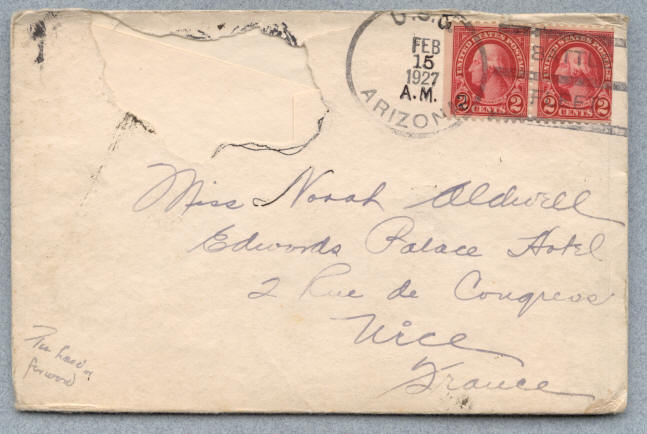 U.S.S.
FEB
15
1927
A.M.
ARIZONA
UNITED STATES POSTAGE
2 CENTS 2
UNITED STATES POSTAGE
2 CENTS 2
Miss Norah Aldwell
Edwards Palace Hotel
2 Rue de Congress
Nice
France
forword